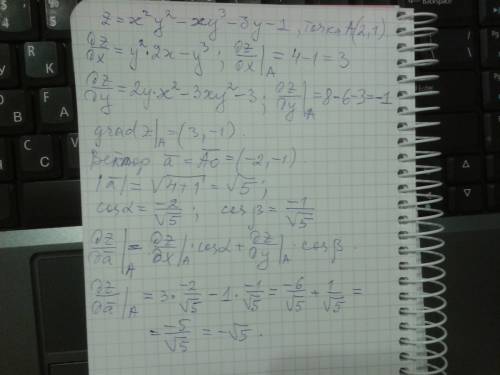 z = x²y² − xy³ − 3y − 1, точка A(2,1)
∂z/∂x = y²·2x − y³; ∂z/∂x|_A = 4−1 = 3
∂z/∂y = 2y·x² − 3xy² − 3; ∂z/∂y|_A = 8−6−3 = −1
grad z|_A = (3, −1).
Вектор a̅ = A̅o̅ = (−2, −1)
|a̅| = √(4+1) = √5;
cosα = −2/√5; cosβ = −1/√5
∂z/∂a̅|_A = ∂z/∂x|_A · cosα + ∂z/∂y|_A · cosβ.
∂z/∂a̅|_A = 3·−2/√5 − 1·−1/√5 = −6/√5 + 1/√5 =
= −5/√5 = −√5.